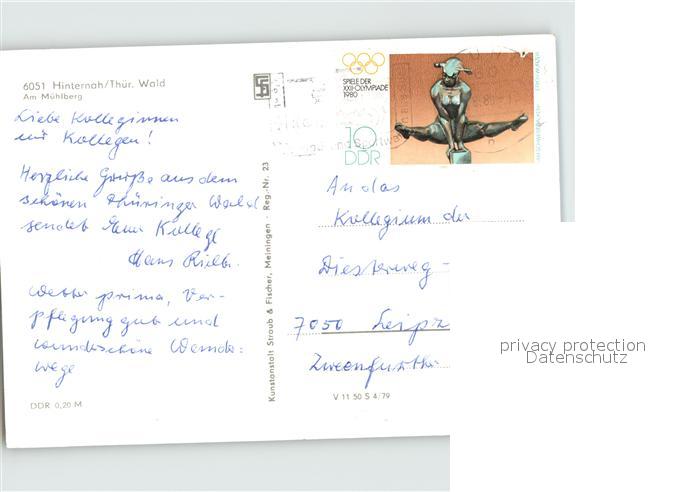 6051 Hinternah/Thür. Wald
Am Mühlberg
Liebe Kolleginnen
und Kollegen!
Herzliche Grüße aus dem
schönen Thüringer Wald
sendet Euer Kollege
Hans
Wetter prima, Ver-
pflegung gut und
wunderschöne Wander-
wege
DDR 0,20 M
Kunstanstalt Straub & Fischer, Meiningen · Reg.-Nr. 23
SPIELE DER
XXII.OLYMPIADE
1980
10
DDR
An das
Kollegium der
Diesterweg-
7050 Leipz
Zweenfurther
V 11 50 S 4/79
privacy protection
Datenschutz